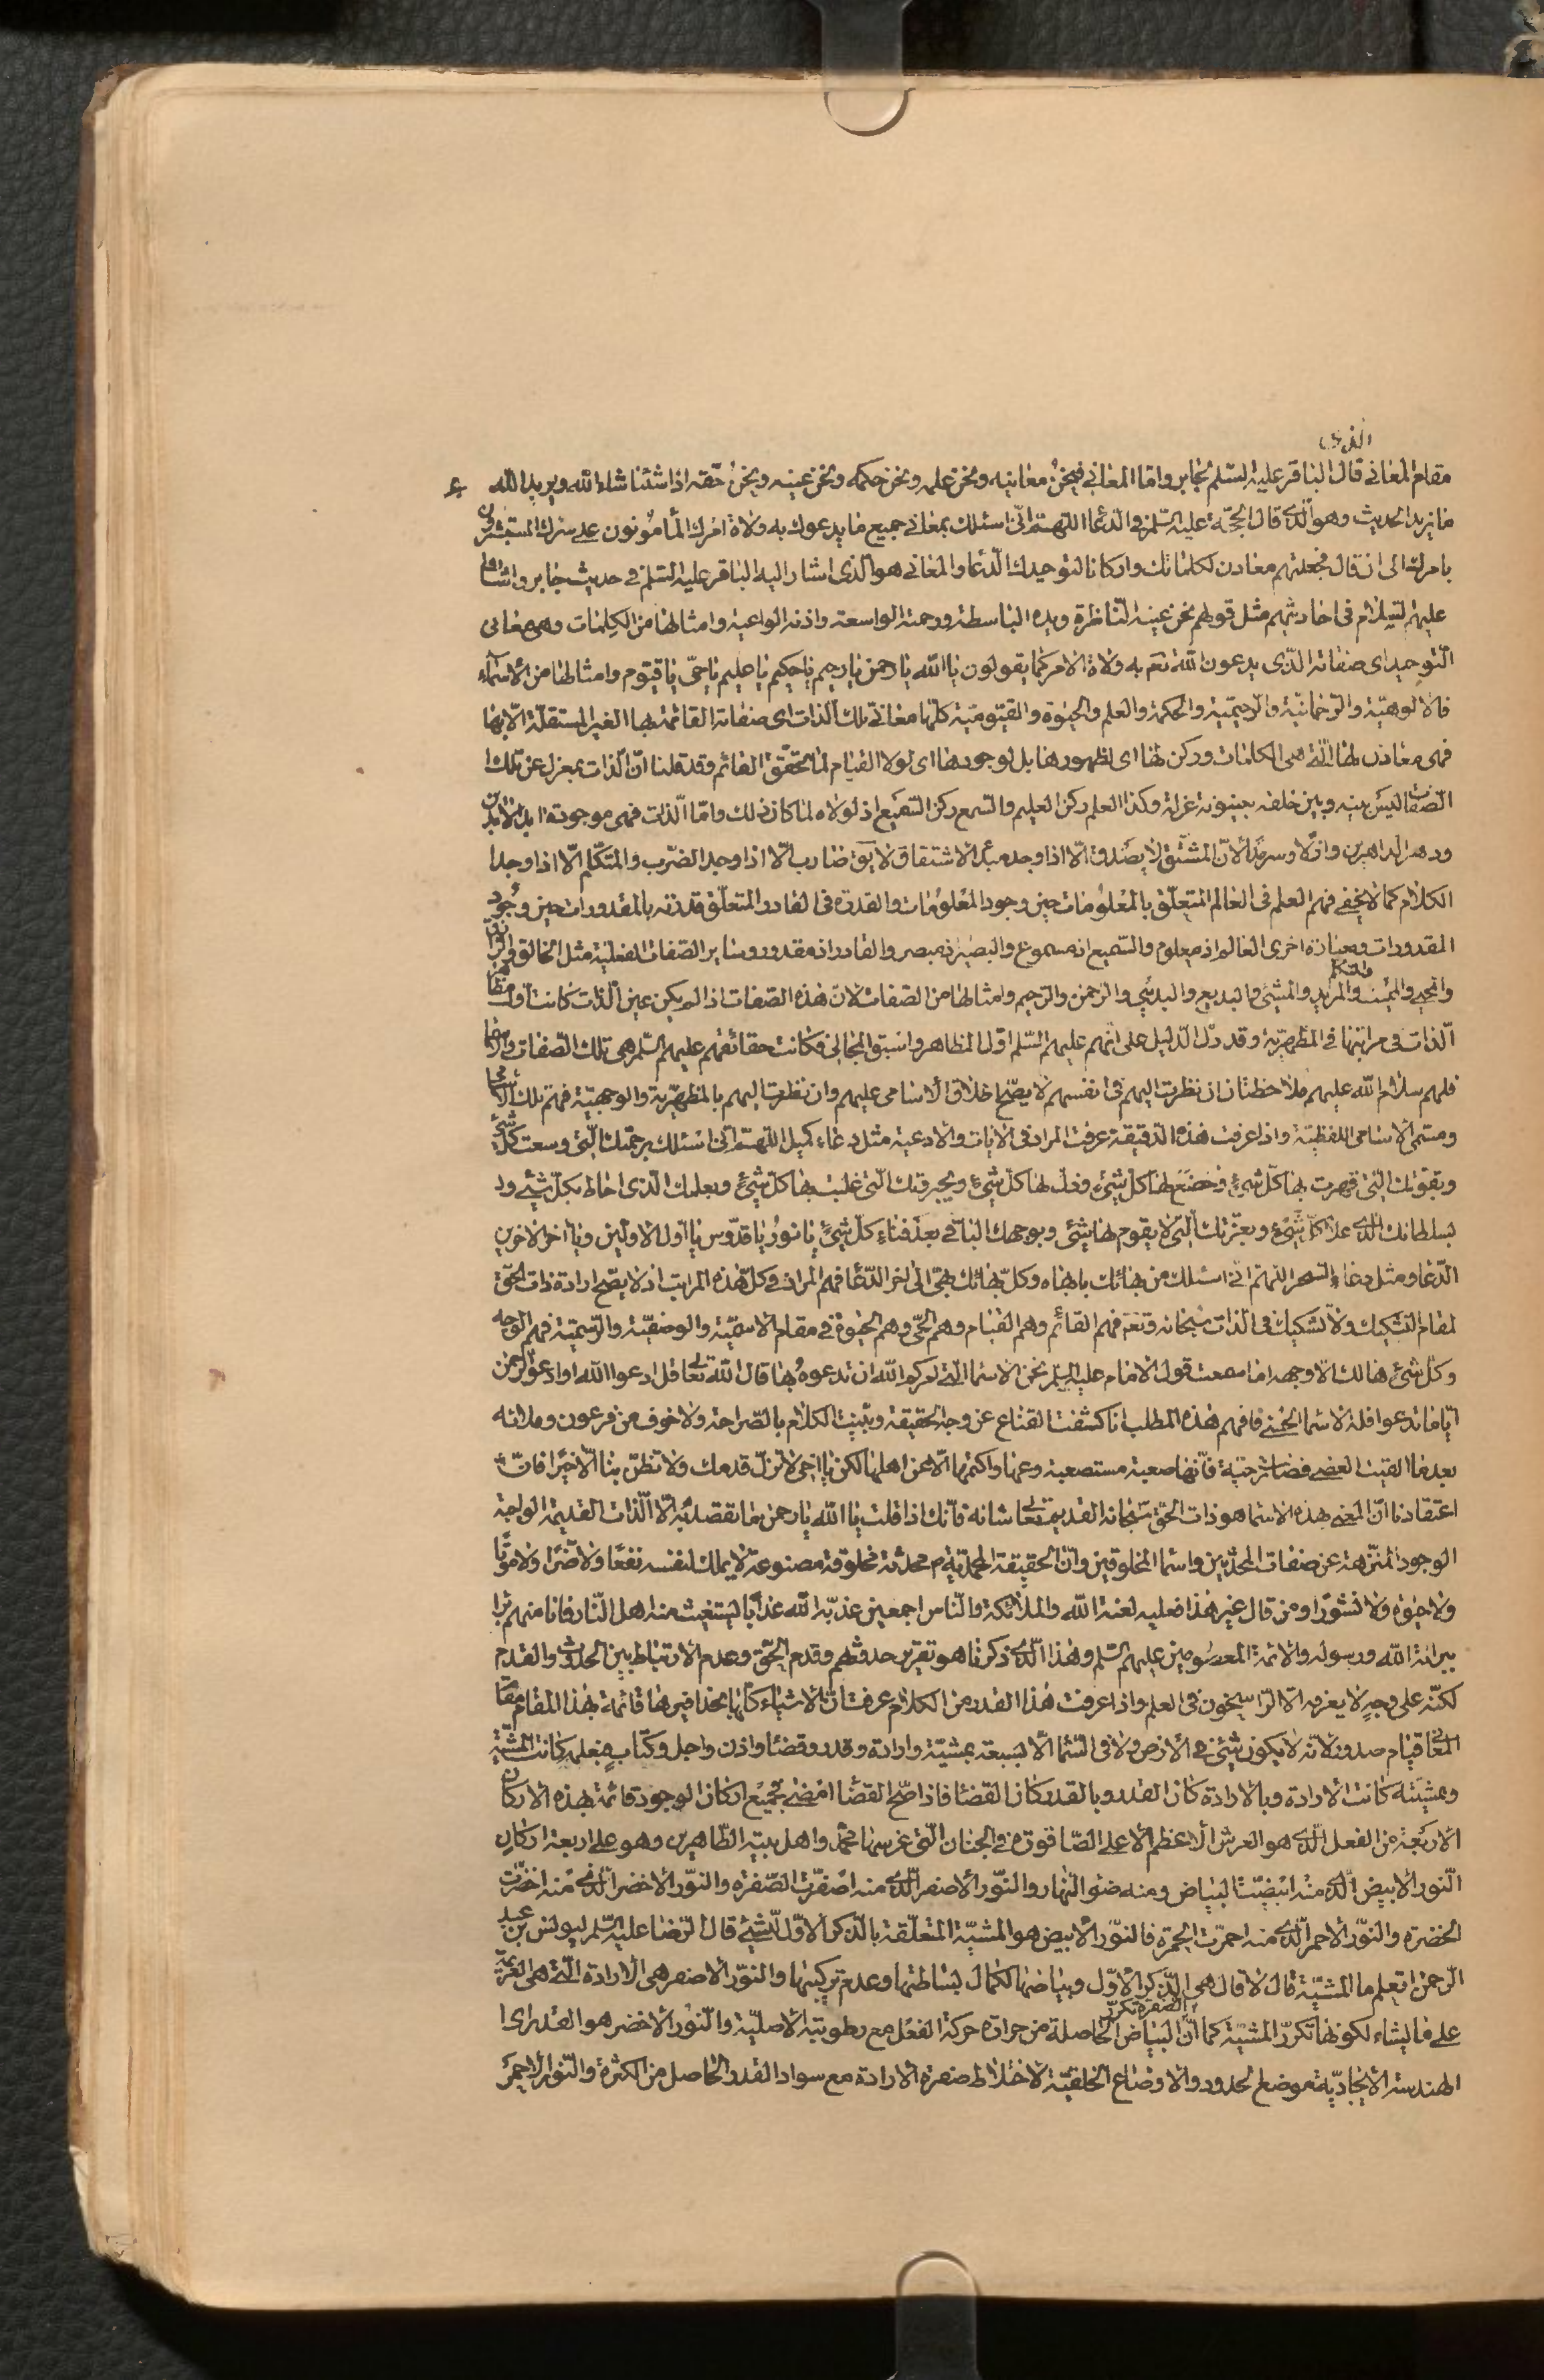 الذي
مقام المعاني قال الباقر عليه السلم لجابر واما المعاني فنحن معانيه ونحن علمه ونحن حكمه ونحن عينه ونحن حقه اذا شئنا شاء الله ويريد الله
ما نريد الحديث وهو الذي قال الحجة عليه السلم في الدعاء اللهم اني اسئلك بمعاني جميع ما يدعوك به ولاة امرك المأمونون على سرك المستبشرون
بامرك الى ان قال فجعلتهم معادن لكلماتك واركانا لتوحيدك الدعا والمعاني هو الذي اشار اليه الباقر عليه السلم في حديث جابر واشاروا
عليهم السلام في احاديثهم مثل قولهم نحن عينه الناظرة ويده الباسطة ورحمته الواسعة واذنه الواعية وامثالها من الكلمات وهي معاني
التوحيد اي صفاته الذي يدعون الله تعم به ولاة الامر كما يقولون يا الله يا رحمن يا رحيم يا حكيم يا عليم يا حي يا قيوم وامثالها من الاسماء
فالالوهية والرحمانية والرحيمية والحكمة والعلم والحيوة والقيومية كلها معاني تلك الذات اي صفاته القائمة بها الغير المستقلة الا بها
فهي معادن لها التي هي الكلمات وركن لها اي لظهورها بل لوجودها اي لولا القيام لما تحقق القائم وقد قلنا ان الذات بمعزل عن تلك
الصفات ليس بينه وبين خلقه بينونة عزلة وكذا العلم ركن العليم والسمع ركن السميع اذ لولاه لما كان ذلك واما الذات فهي موجودة ابد الابدين
ودهر الداهرين وازلا وسرمدا لان المشتق لا يصدق الا اذا وجد مبدء الاشتقاق لا يق ضارب الا اذا وجد الضرب والمتكلم الا اذا وجد
الكلام كما لا يخفى فهم العلم في العالم المتعلق بالمعلومات حين وجود المعلومات والقدرة في القادر المتعلق قدرته بالمقدورات حين وجود
المقدورات وبعبارة اخرى العالم اذ معلوم والسميع اذ مسموع والبصير اذ مبصر والقادر اذ مقدور وساير الصفات الفعلية مثل الخالق والرازق
والمحيي والمميت والمريد والمتكلم والمنشئ والبديع والبدئ والرحمن والرحيم وامثالها من الصفات لان هذه الصفات اذا لم يكن عين الذات كانت اول مظاهر
الذات في مراتبها في المظهرية وقد دل الدليل على انهم عليهم السلم اول المظاهر واسبق المجالي فكانت حقائقهم عليهم السلم هي تلك الصفات والاسما
فلهم سلام الله عليهم ملاحظتان ان نظرت اليهم في انفسهم لا يصح اطلاق الاسامي عليهم وان نظرت اليهم بالمظهرية والوجهية فهم تلك الاسامي
ومسمى الاسامي اللفظية واذا عرفت هذه الدقيقة عرفت المراد في الايات والادعية مثل دعاء كميل اللهم اني اسئلك برحمتك التي وسعت كل شئ
وبقوتك التي قهرت بها كل شئ وخضع لها كل شئ وذل لها كل شئ وبجبروتك التي غلبت بها كل شئ وبعلمك الذي احاط بكل شئ و
بسلطانك الذي علا كل شئ وبعزتك التي لا يقوم لها شئ وبوجهك الباقي بعد فناء كل شئ يا نور يا قدوس يا اول الاولين ويا اخر الاخرين
الدعا ومثل دعاء السحر اللهم اني اسئلك من بهائك بابهاه وكل بهائك بهي الى اخر الدعا فهم المراد في كل هذه المراتب اذ لا يصح ارادة ذات الحق
لمقام التشكيك ولا تشكيك في الذات سبحانه وتعم فهم القائم وهم القيام وهم الحي وهم الحيوة في مقام الاسمية والوصفية والرسمية فهم الوجه
وكل شئ هالك الا وجهه اما سمعت قول الامام عليه السلم نحن الاسما التي امركم الله ان تدعوه بها قال الله تعالى قل ادعوا الله او ادعوا الرحمن
ايا ما تدعوا فله الاسما الحسنى فافهم هذه المطلب انا كشفت القناع عن وجه الحقيقة وبينت الكلام بالصراحة ولا خوف من فرعون وملائه
بعد ما القيت العصى فصارت حية فانها صعبة مستصعبة وعها واكتمها الا عن اهلها لكن يا اخي لا تزل قدمك ولا تظن بنا الا خيرا فان
اعتقادنا ان المعني بهذه الاسما هو ذات الحق سبحانه القديم تعالى شانه فانك اذا قلت يا الله يا رحمن ما تقصد به الا الذات القديمة الواجبة
الوجود المنزهة عن صفات المحدثين واسما المخلوقين وان الحقيقة المحمدية ص محدثة مخلوقة مصنوعة لا يملك لنفسه نفعا ولا ضرا ولا موتا
ولا حيوة ولا نشورا ومن قال غير هذا فعليه لعنة الله والملائكة والناس اجمعين عذبه الله عذابا يستغيث منه اهل النار فانا منهم برا
ببرائة الله ورسوله والائمة المعصومين عليهم السلم وهذا الذي ذكرنا هو تقرير حدوثهم وقدم الحق وعدم الارتباط بين الحدوث والقدم
لكنه على وجه لا يعرفه الا الراسخون في العلم واذا عرفت هذا القدر من الكلام عرفت ان الاشياء كلها بحذافيرها قائمة بهذا المقام مقام
المعاني قيام صدور لانه لا يكون شئ في الارض ولا في السما الا بسبعة بمشية وارادة وقدر وقضا واذن واجل وكتاب فبعلمه كانت المشية
وبمشيته كانت الارادة وبالارادة كان القدر وبالقدر كان القضا فاذا صح القضا امضى فجميع اركان الوجود قائمة بهذه الاركان
الاربعة من الفعل الذي هو العرش الاعظم الاعلى الصاقورة في الجنان التي غرسها محمد واهل بيته الطاهرين وهو على اربعة اركان
النور الابيض الذي منه ابيضت البياض ومنه ضوء النهار والنور الاصفر الذي منه اصفرت الصفرة والنور الاخضر الذي منه اخضرت
الخضرة والنور الاحمر الذي منه احمرت الحمرة فالنور الابيض هو المشية المتعلقة بالذكر الاول للشئ قال الرضا عليه السلم ليونس بن عبد
الرحمن اتعلم ما المشية قال لا قال هي الذكر الاول وبياضها لكمال بساطتها وعدم تركيبها والنور الاصفر هي الارادة التي هي العزيمة
على ما يشاء لكونها تكرر المشية كما ان الصفرة تكرر البياض الحاصلة من حرارة حركة الفعل مع رطوبته الاصلية والنور الاخضر هو القدر اي
الهندسة الايجادية موضع الحدود والاوضاع الخلقية لاختلاط صفرة الارادة مع سواد القدر الحاصل من الكثرة والنور الاحمر